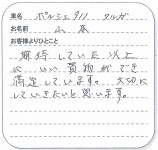 車名 ポルシェ911 タルガ
お名前 山本
お客様よりひとこと
期待していた以上
に いい買物ができ
満足しています。大切に
していきたいと思います。